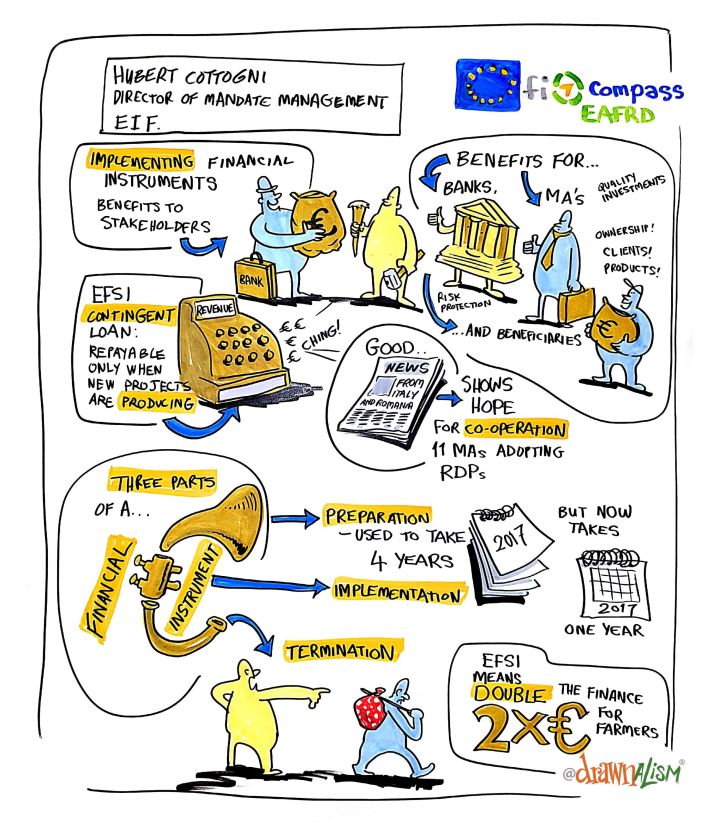 HUBERT COTTOGNI
DIRECTOR OF MANDATE MANAGEMENT
EIF.
fi compass
EAFRD
IMPLEMENTING FINANCIAL
INSTRUMENTS
BENEFITS TO
STAKEHOLDERS
€
BANK
BENEFITS FOR...
BANKS,
MA'S
QUALITY
INVESTMENTS
OWNERSHIP!
CLIENTS!
PRODUCTS!
RISK
PROTECTION
...AND BENEFICIARIES
€
EFSI
CONTINGENT
LOAN:
REPAYABLE
ONLY WHEN
NEW PROJECTS
ARE PRODUCING
REVENUE
€€
€
€ CHING!
GOOD...
NEWS
FROM
ITALY
AND ROMANIA
SHOWS
HOPE
FOR CO-OPERATION
11 MAs ADOPTING
RDPs
THREE PARTS
OF A...
FINANCIAL
INSTRUMENT
PREPARATION
- USED TO TAKE
4 YEARS
2017
BUT NOW
TAKES
2017
ONE YEAR
IMPLEMENTATION
TERMINATION
EFSI
MEANS
DOUBLE THE FINANCE
2X€ FOR
FARMERS
@drawnalism®